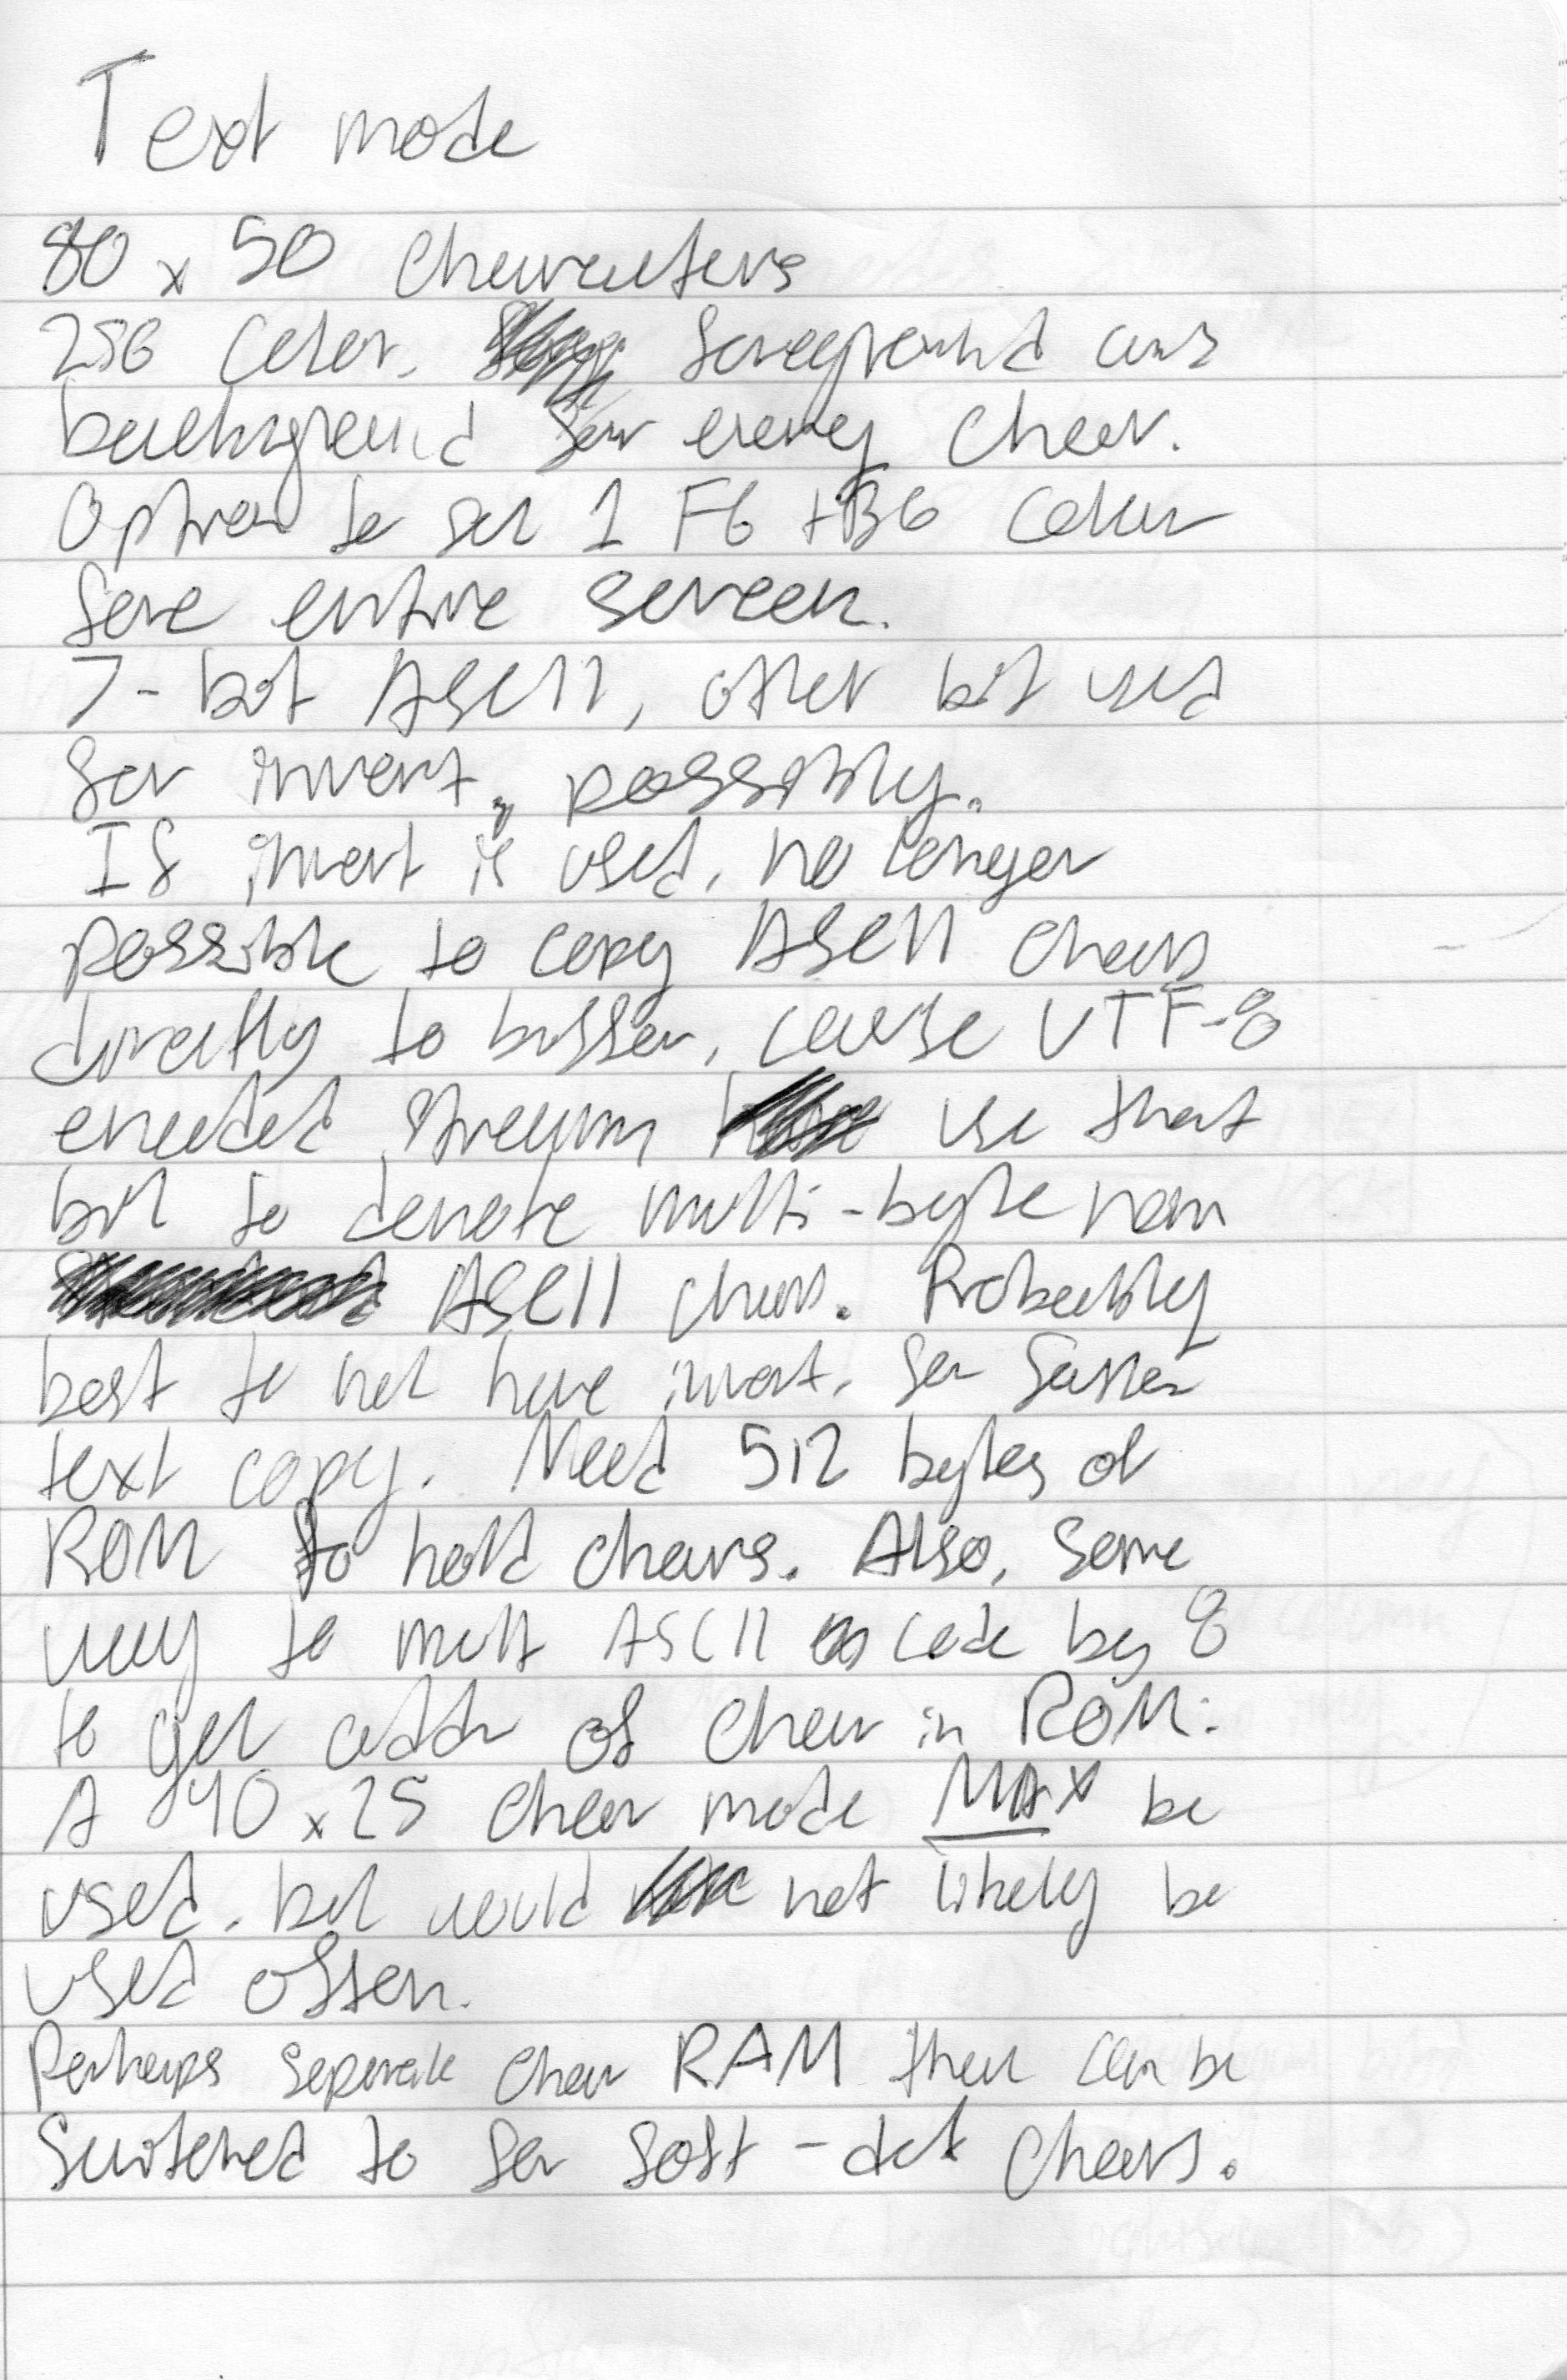 Text mode
80 x 50 characters
256 color. foreground and
background for every char.
Option to set 1 FG + BG color
fore entire screen.
7-bit ASCII, other bit used
for invert, possibly.
If invert is used, no longer
possible to copy ASCII chars
directly to buffer, cause UTF-8
encoded stream use that
bit to denote multi-byte non
ASCII chars. Probably
best to not have invert, for faster
text copy. Need 512 bytes of
ROM to hold chars. Also, some
way to mult ASCII code by 8
to get addr of char in ROM.
A 40 x 25 char mode MAY be
used, but would not likely be
used often.
Perhaps separate char RAM then can be
switched to for soft-def chars.